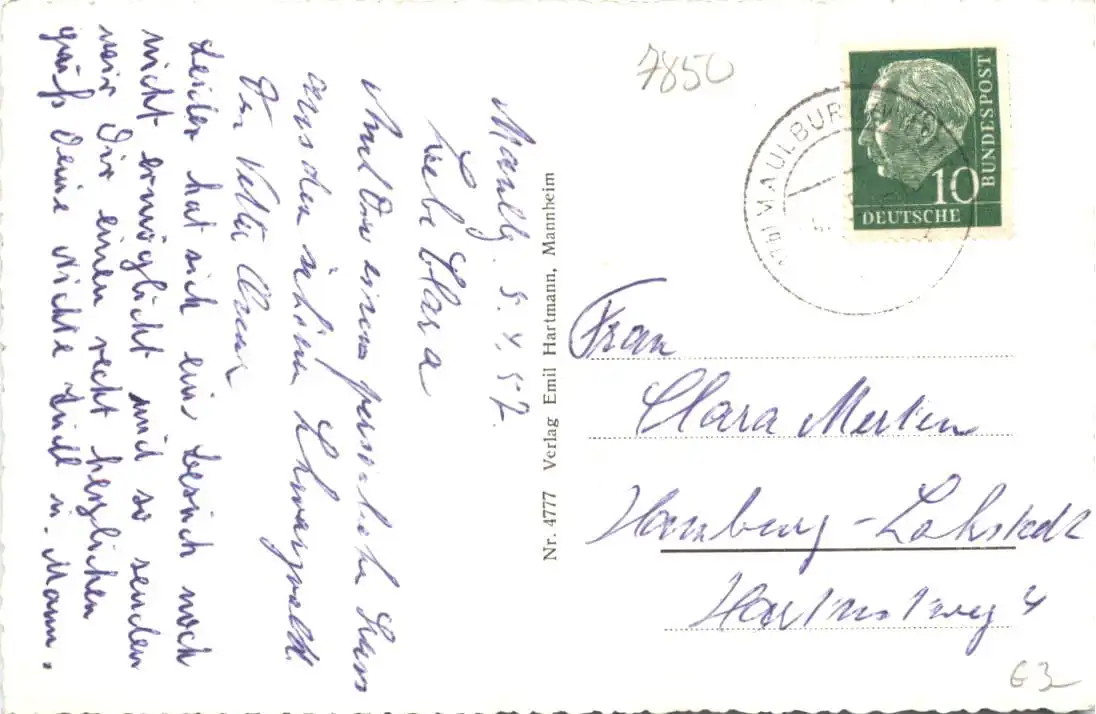 5. 4. 57.
Liebe Clara
einen persönlichen
aus dem schönen Schwarzwald.
Dein Vetter
Leider hat sich ein Besuch noch
nicht ermöglicht und so senden
wir Dir einen recht herzlichen
gruß Deine Nichte u. Mann.
Nr. 4777 Verlag Emil Hartmann, Mannheim
7850
MAULBURG
10
DEUTSCHE
BUNDESPOST
Frau
Clara Merten
Hamburg-Lokstedt
4
63